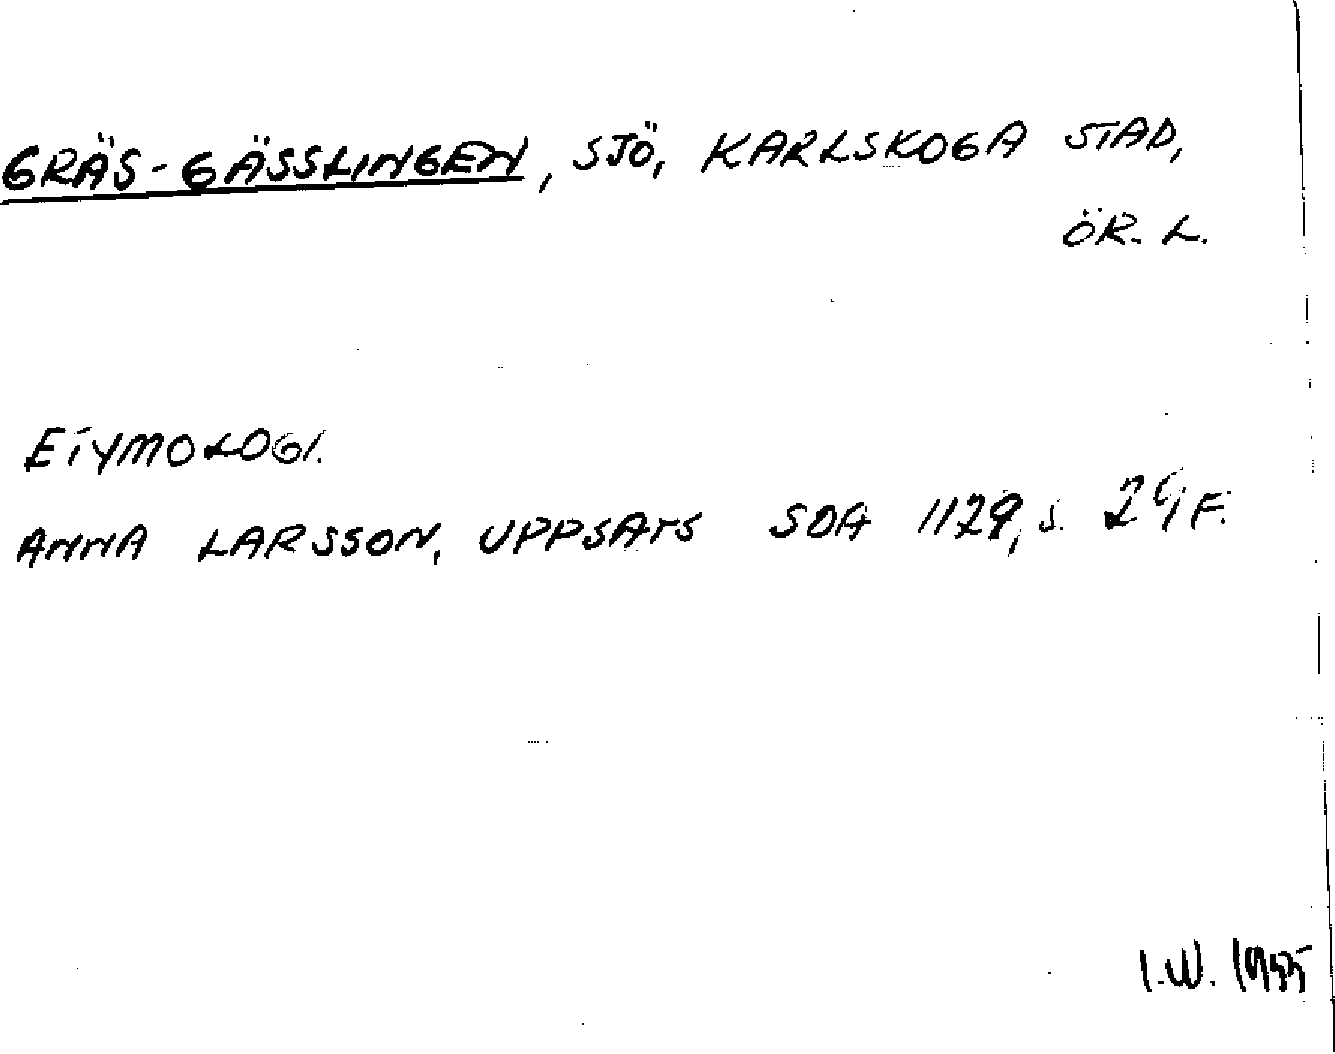 GRÄS-GÄSSLINGEN, SJÖ, KARLSKOGA STAD,
ÖR. L.
ETYMOLOGI.
ANNA LARSSON, UPPSATS SOA 1129, S. 29 F.
I.W. 1955